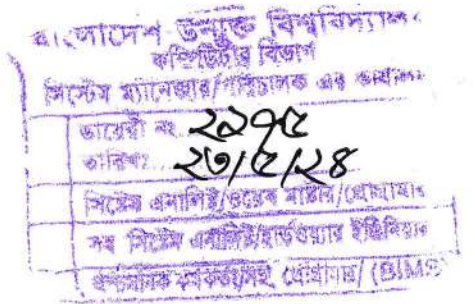 বাংলাদেশ উন্মুক্ত বিশ্ববিদ্যালয়
কম্পিউটার বিভাগ
সিস্টেম ম্যানেজার/পরিচালক এর কার্যালয়
ডায়েরী নং ২২৭৫
তারিখঃ ২৩/৫/২৪
সিস্টেম এনালিষ্ট/ওয়েব মাষ্টার/প্রোগ্রামার
সহ সিস্টেম এনালিষ্ট/হার্ডওয়্যার ইঞ্জিনিয়ার
প্রশাসনিক কর্মকর্তা/সহঃ প্রোগ্রামার/ (BIMS)